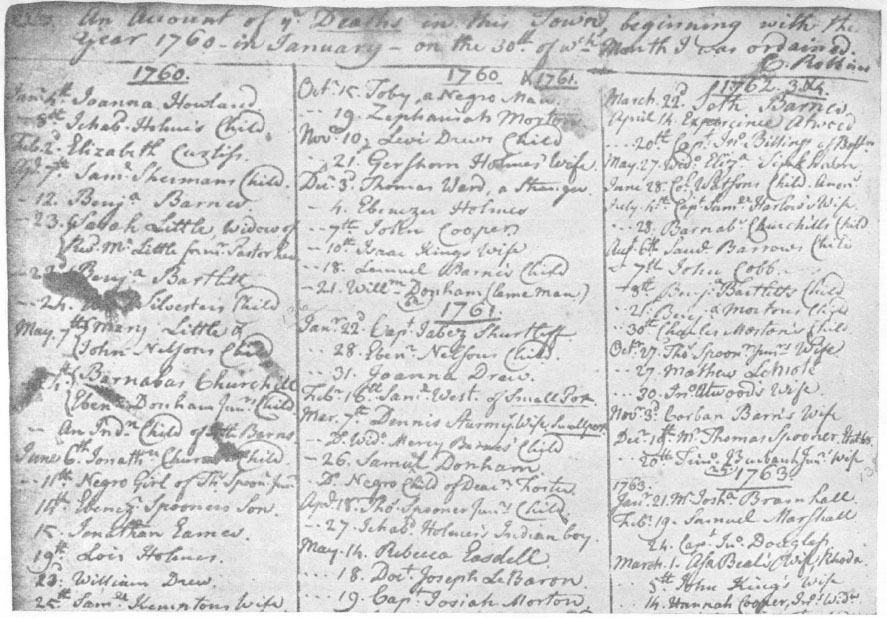 An Account of yͤ Deaths in this Town, beginning with the
Year 1760 - in January - on the 30th of wch Month I was ordained.
C. Robbins
1760.
Janʳ 4th Joanna Howland
- 8th Ichabd Holmes Child
Feb. 2d Elizabeth Curtiss.
7th Samll Shermans Child.
- 12. Benja Barnes
- 23. Sarah Little, Widow of
Revd Mr Little formr Pastor here
Benja Bartlett
- 24. Silvesters Child
May 7th Mary Little &
John Nelsons Child
Barnabas Churchill
Ebenr Donham Junrs Child
- An Indn Child of Seth Barns
June 6th Jonathn Child.
- 11th Negro Girl of Ths Spoonr Junr
14th Ebenezr Spooners Son.
15. Jonathan Eames.
19th Lois Holmes
23d William Drew
25th Samll Kemptons Wife
1760 & 1761.
Octr 15. Toby, a Negro Man.
- 19. Zephaniah Morton
Novr 10, Levi Drews Child
- 21. Gershom Holmes' Wife
Decr 3d Thomas Ward, a Stranger.
- 4. Ebenezer Holmes
- 7th John Cooper
- 10th Isaac Kings Wife
- 18. Lemuel Barnes Child
- 21. Willm Donham (lame Man)
1761.
Janr 22d Capt Jabez Shurtleff
- 28. Ebenr Nelsons Child.
- 31. Joanna Drew.
Febr 16th Samll West. of Small Pox
Mar. 7th Dennis Sturmy's Wife Smallpox
- Do Wido Mercy Barnes' Child
- 26. Samul Donham
- Do Negro Child of Deacn Foster
Apl 18. Thos Spooner Junrs Child
- 27. Ichabd Holmes's Indian boy.
May 14. Rebecca Easdell.
- 18. Doct Joseph LeBaron.
- 19. Capt Josiah Morton,
1762. 3 &4.
March. 22d Seth Barnes
April 14. Experience Atwood
20th Capt Jno Billings of Boston
May. 27. Wido Eliza
June 28. Col. Watsons Child.
July 4th Capt Samll Harlow's Wife
- 28. Barnabs Churchills Child
Augt 6th Barrows Child
- 7th John Cobb
- 8th Benj. Bartletts Child
- 21. Benja Mortons Child
- 30th Charles Morton's Child
Octr 27. Thos Spoonr Junrs Wife
- 27. Mathew LeMote
- 30. Jno Atwood's Wife.
Novr 3d Corban Barns's Wife
Decr 18th Mr Thomas Spooner,
- 20th Junrs Wife
1763.
1763.
Janr 21. Mr Josha Bramhall.
Febr. 19. Samuel Marshall
24. Capt Jno Douglass
March. 1. Asa Beal's Wife, Rhoda
5th John King's Wife
14. Hannah Cooper, Wido